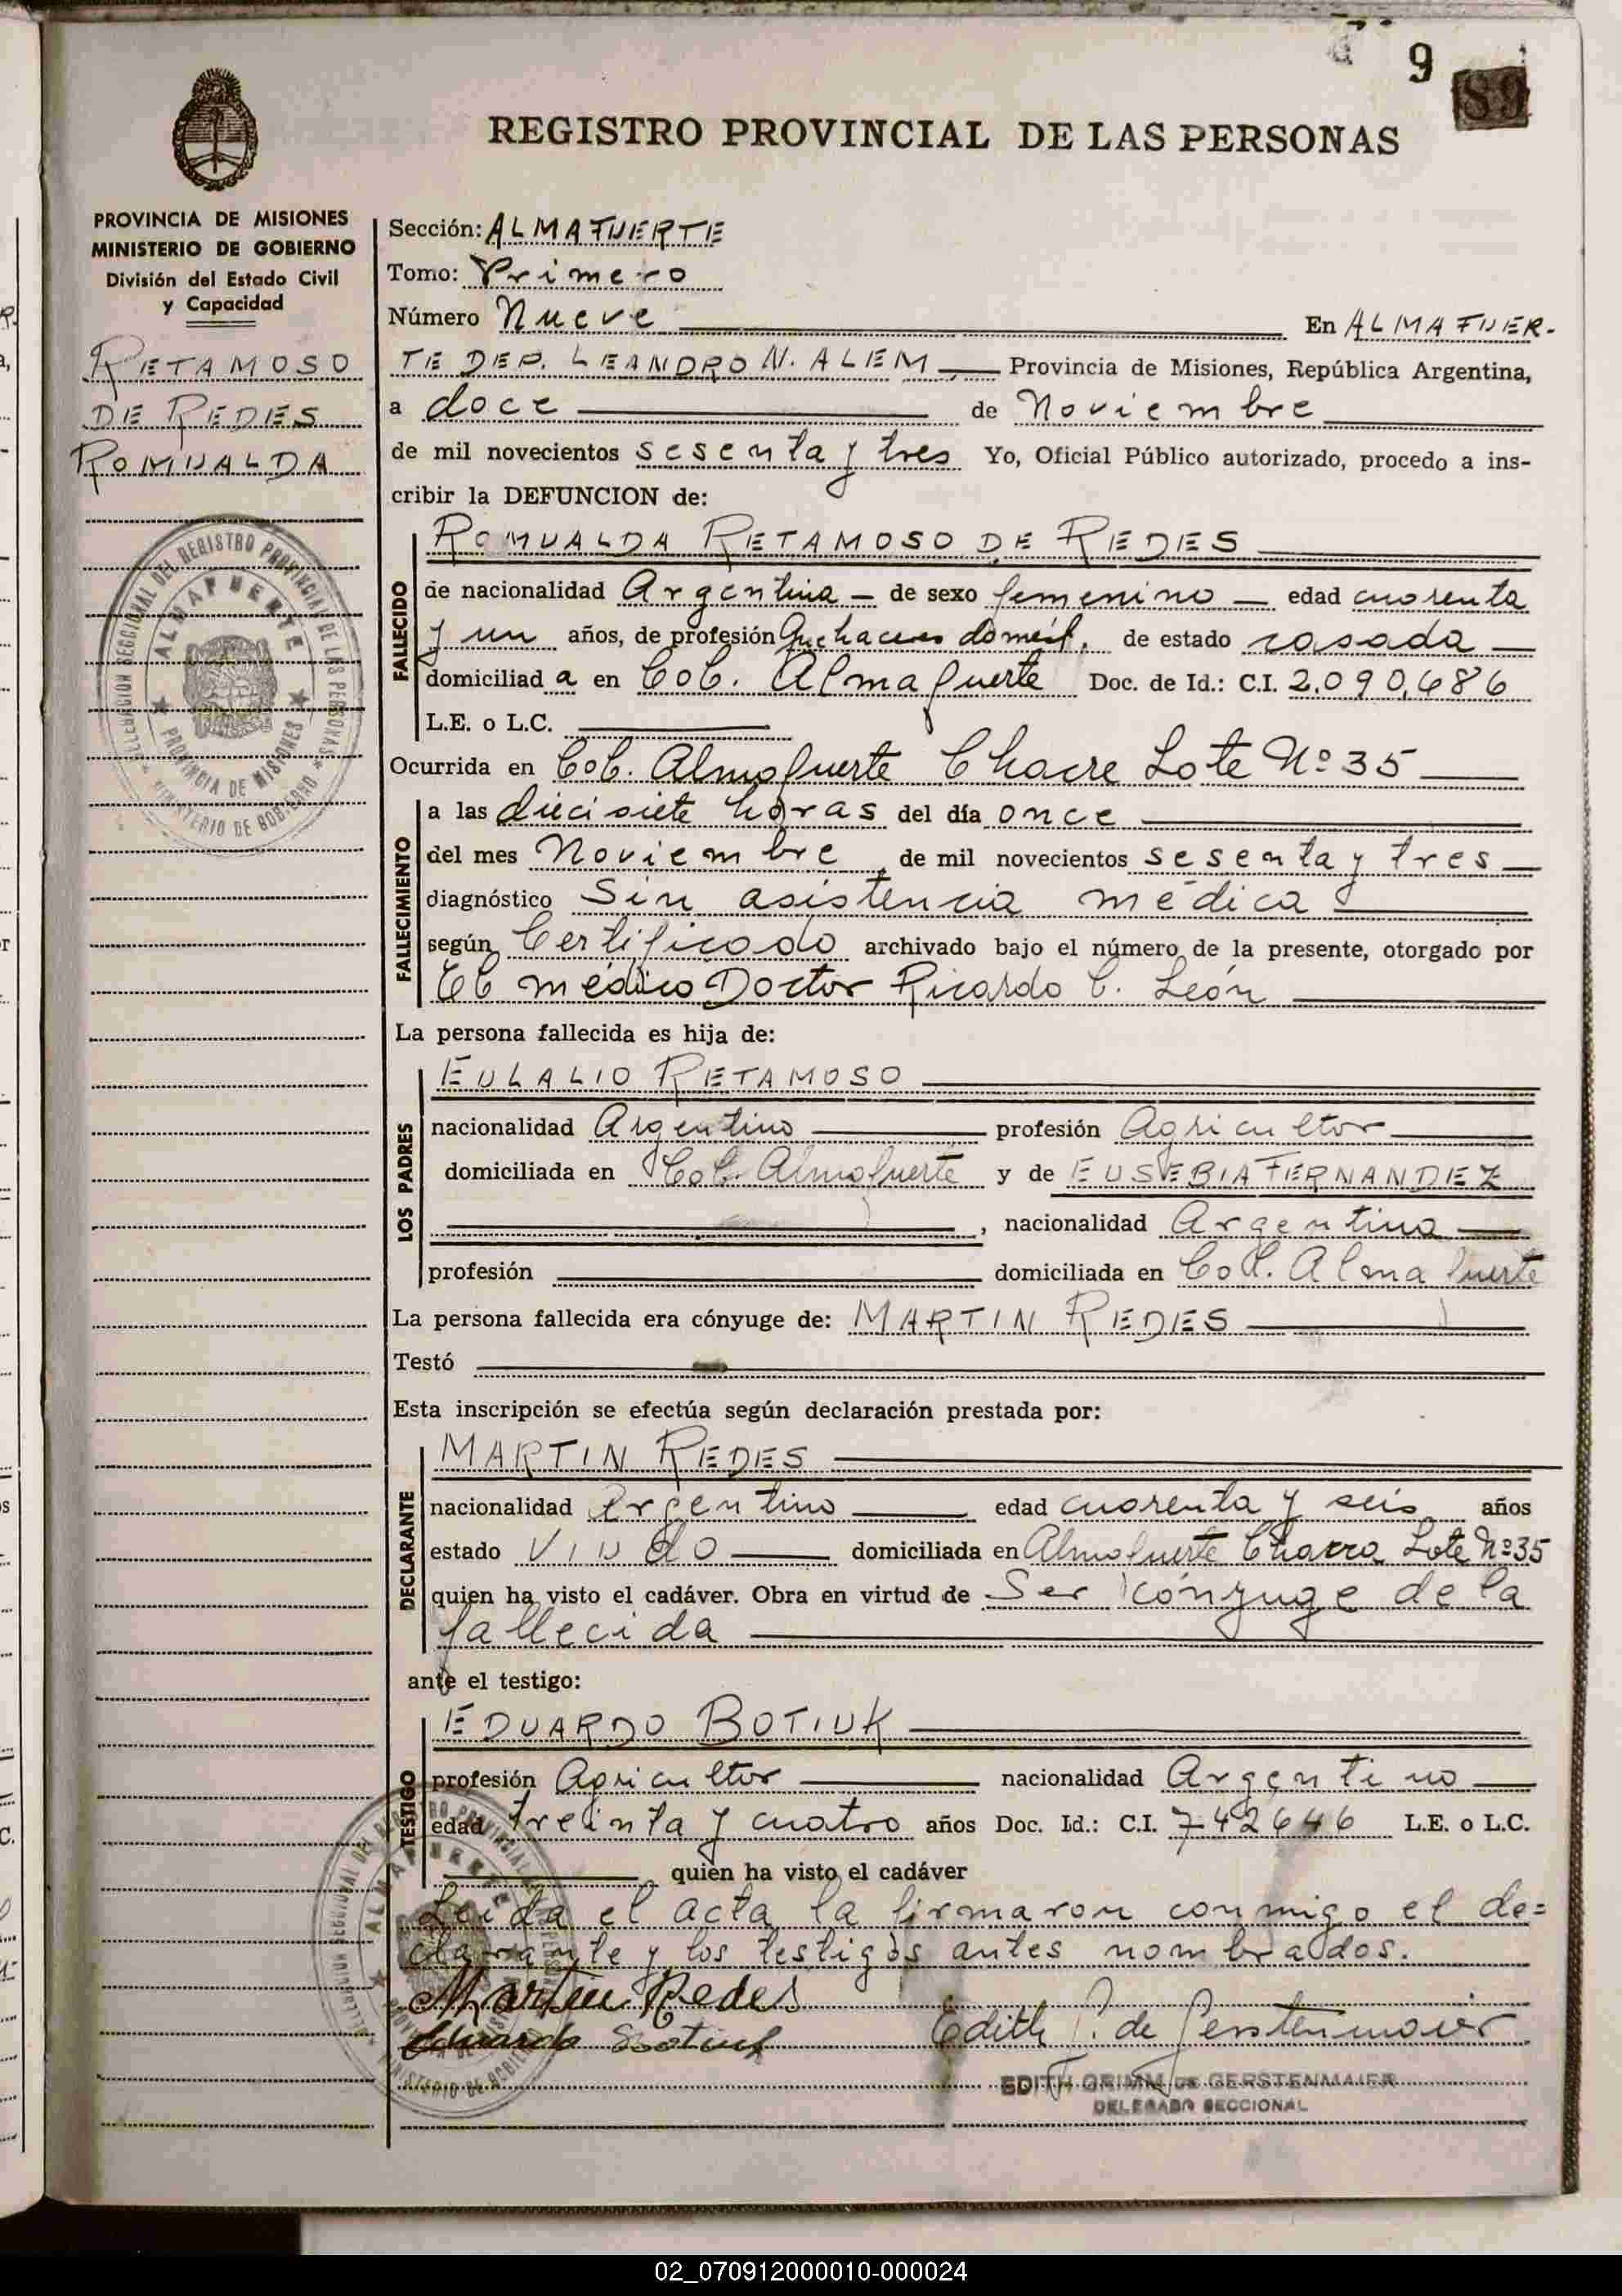 9
89
REGISTRO PROVINCIAL DE LAS PERSONAS
PROVINCIA DE MISIONES
MINISTERIO DE GOBIERNO
División del Estado Civil
y Capacidad
RETAMOSO
DE REDES
ROMUALDA
Sección: ALMAFUERTE
Tomo: Primero
Número Nueve En ALMAFUER-
TE DEP. LEANDRO N. ALEM, Provincia de Misiones, República Argentina,
a doce de Noviembre
de mil novecientos sesenta y tres Yo, Oficial Público autorizado, procedo a ins-
cribir la DEFUNCION de:
FALLECIDO
ROMUALDA RETAMOSO DE REDES
de nacionalidad Argentina - de sexo femenino - edad cuarenta
y un años, de profesión Quehaceres domést. de estado casada
domiciliad a en Col. Almafuerte Doc. de Id.: C.I. 2.090.686
L.E. o L.C.
Ocurrida en Col. Almafuerte Chacre Lote Nº 35
FALLECIMIENTO
a las diecisiete horas del día once
del mes Noviembre, de mil novecientos sesenta y tres
diagnóstico Sin asistencia médica
según Certificado archivado bajo el número de la presente, otorgado por
El médico Doctor Ricardo C. León
La persona fallecida es hija de:
LOS PADRES
EULALIO RETAMOSO
nacionalidad Argentino profesión Agricultor
domiciliada en Col. Almafuerte y de EUSEBIA FERNANDEZ
, nacionalidad Argentina
profesión domiciliada en Col. Almafuerte
La persona fallecida era cónyuge de: MARTIN REDES
Testó
Esta inscripción se efectúa según declaración prestada por:
DECLARANTE
MARTIN REDES
nacionalidad Argentino edad cuarenta y seis años
estado Viudo domiciliada en Almafuerte Chacra Lote Nº 35
quien ha visto el cadáver. Obra en virtud de Ser cónyuge de la
fallecida
ante el testigo:
TESTIGO
EDUARDO BOTIUK
profesión Agricultor nacionalidad Argentino
edad treinta y cuatro años Doc. Id.: C.I. 742646 L.E. o L.C.
quien ha visto el cadáver
Leida el acta la firmaron conmigo el de=
clarante y los testigos antes nombrados.
Martin Redes
Eduardo Botiuk
Edith G. de Gerstenmaier
EDITH GRIMM DE GERSTENMAIER
DELEGADA SECCIONAL
DELEGACION SECCIONAL DEL REGISTRO PROVINCIAL DE LAS PERSONAS
ALMAFUERTE
PROVINCIA DE MISIONES
MINISTERIO DE GOBIERNO
02_070912000010-000024